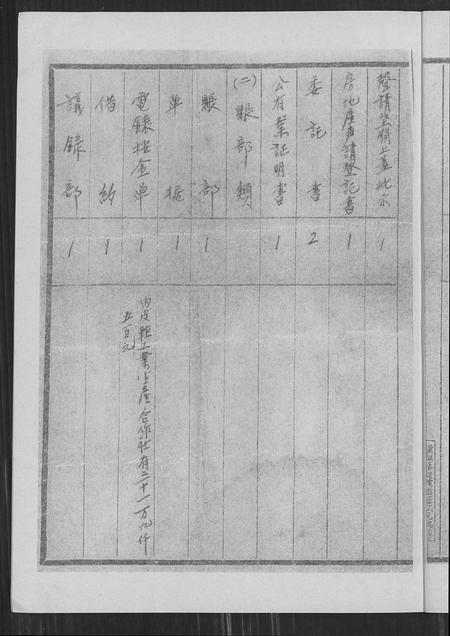 聲請登賬上蓋批示 1
房地產声請登記書 1
委託書 2
公有業証明書 1
(二)賬部類
賬部 1
單据 1
電錶按金單 1
内皮鞋工業生產合作社有二十一万九仟
五百元
借約 1
議錄部 1